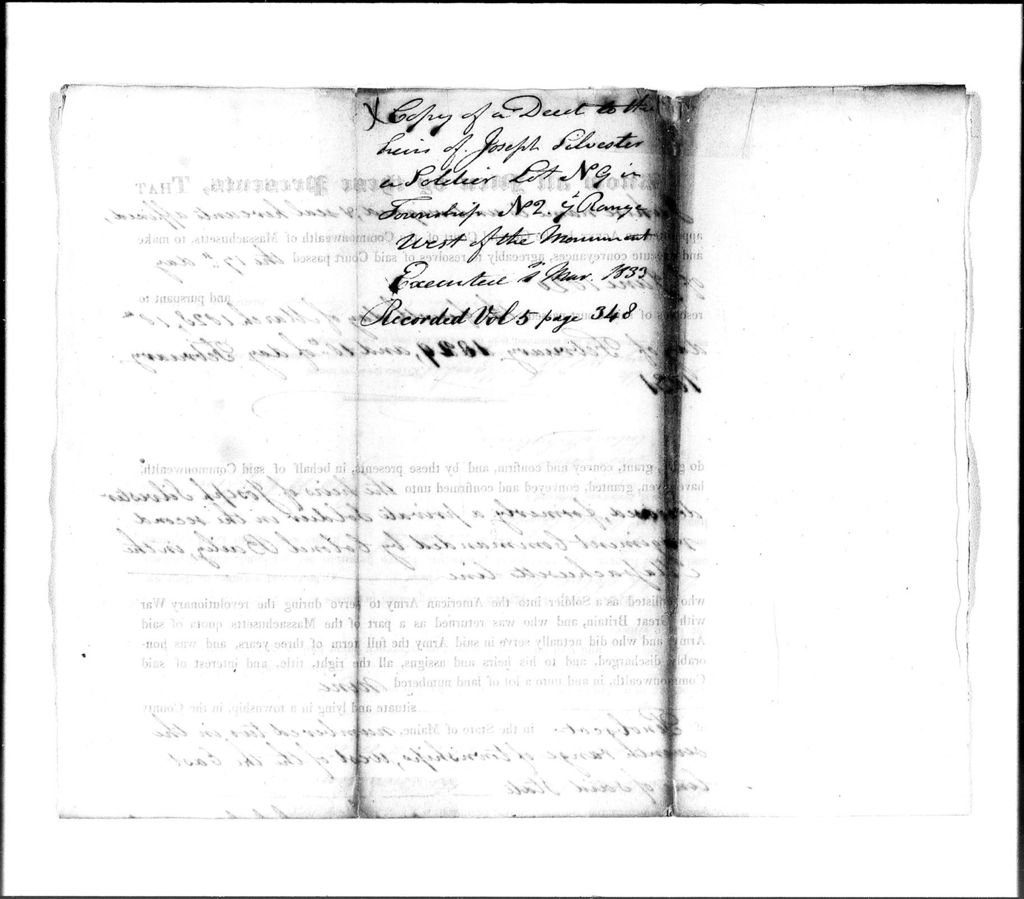 Copy of a Deed to the
heirs of Joseph Silvester
a Soldier Lot N 9 in
Township N 2. 7 Range
West of the Monument
Executed Mar. 1833
Recorded Vol 5 page 348
Know all Men by these Presents, THAT
make
and execute conveyances, agreeably to resolves of said Court passed the 17th day
and pursuant to
of March 1828, 10th
day of February 1829, and 16th day February
1831
do give, grant, convey and confirm, and by these presents, in behalf of said Commonwealth,
have given, granted, conveyed and confirmed unto the heirs of Joseph Silvester
formerly a private Soldier in the second
regiment Commanded by Colonel Baily, in the
Massachusetts line
who enlisted as a Soldier into the American Army to serve during the revolutionary War
with Great Britain, and who was returned as a part of the Massachusetts quota of said
Army and who did actually serve in said Army the full term of three years, and was hon-
orably discharged, and to his heirs and assigns, all the right, title, and interest of said
Commonwealth, in and unto a lot of land numbered nine
situate and lying in a township, in the County
of Penobscot in the State of Maine, numbered two in the
seventh range of townships, west of the East
line of said State